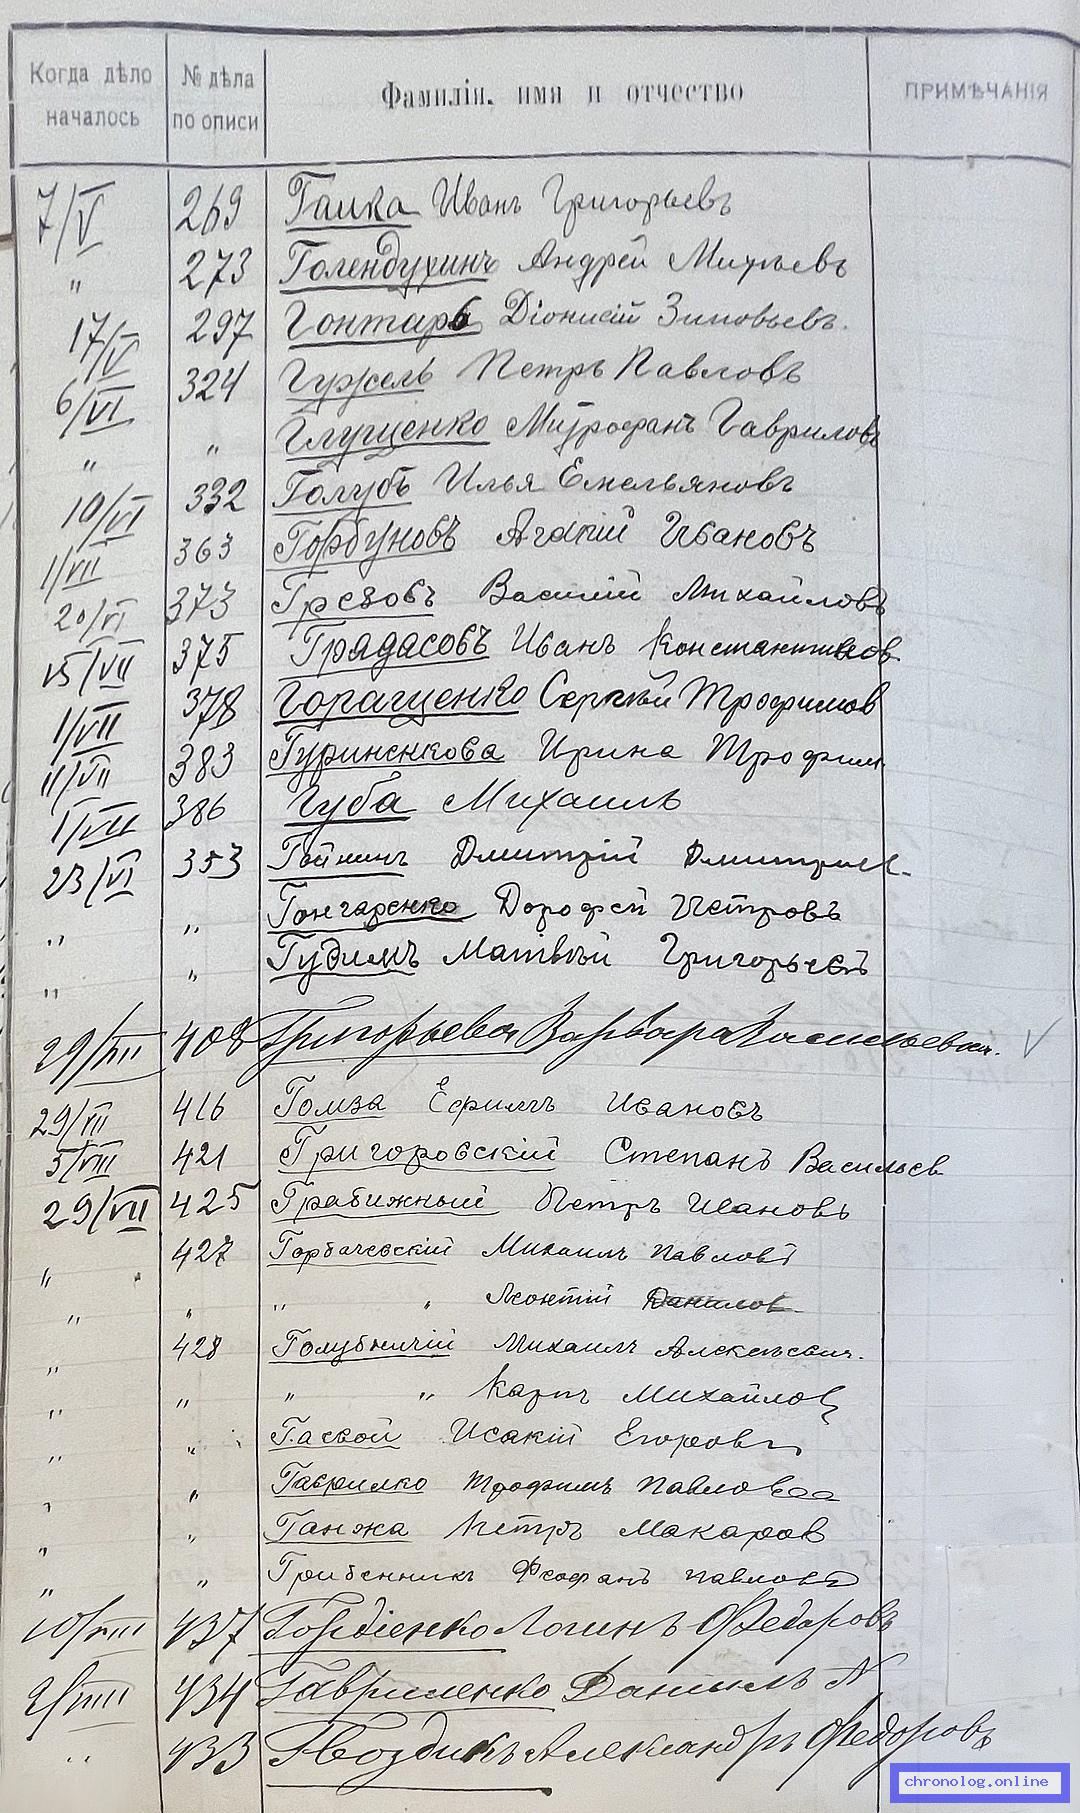 Когда дѣло началось № дѣла по описи Фамилія, имя и отчество ПРИМѢЧАНІЯ
7/V 269 Галка Иванъ Григорьевъ
" 273 Голендухинъ Андрей
17/V 297 Гонтарь Діонисій Зиновьевъ.
6/VI 324 Гужель Петръ Павловъ
" " Глущенко Митрофанъ Гавриловъ
10/VI 332 Голубъ Илья Емельяновъ
1/VII 363 Горбуновъ Ивановъ
20/VI 373 Грезовъ Василій Михайловъ
15/VII 375 Градасовъ Иванъ Константинов
1/VII 378 Горащенко Сергѣй Трофимов
11/VII 383 Гуриненкова Ирина Трофим
1/VII 386 Губа Михаилъ
23/VI 353 Гойнинъ Дмитрій Дмитриев.
" " Гончаренко Дорофей Петровъ
" " Гудимъ Матвѣй Григорьевъ
29/VII 408 Григорьева Варвара Васильевна. ✓
29/VII 416 Гомза Ефимъ Ивановъ
5/VIII 421 Григоровскій Степанъ Васильев
29/VII 425 Грабижный Петръ Ивановъ
" 427 Горбачевскій Михаилъ Павловъ
" " " " Леонтій Данилов
" 428 Голубничій Михаилъ Алексѣевич.
" " " " Карпъ Михайлов
" " Гаевой Исакій Егоровъ
" " Гаврилко Трофимъ Павлова
" " Ганжа Петръ Макаров
" " Грибенникъ Феофанъ Павловъ
10/VIII 437 Гордіенко Логинъ Федоровъ
2/VIII 434 Гавриленко Данилъ N
" 433 Гвоздикъ Александръ Федоровъ
chronolog.online